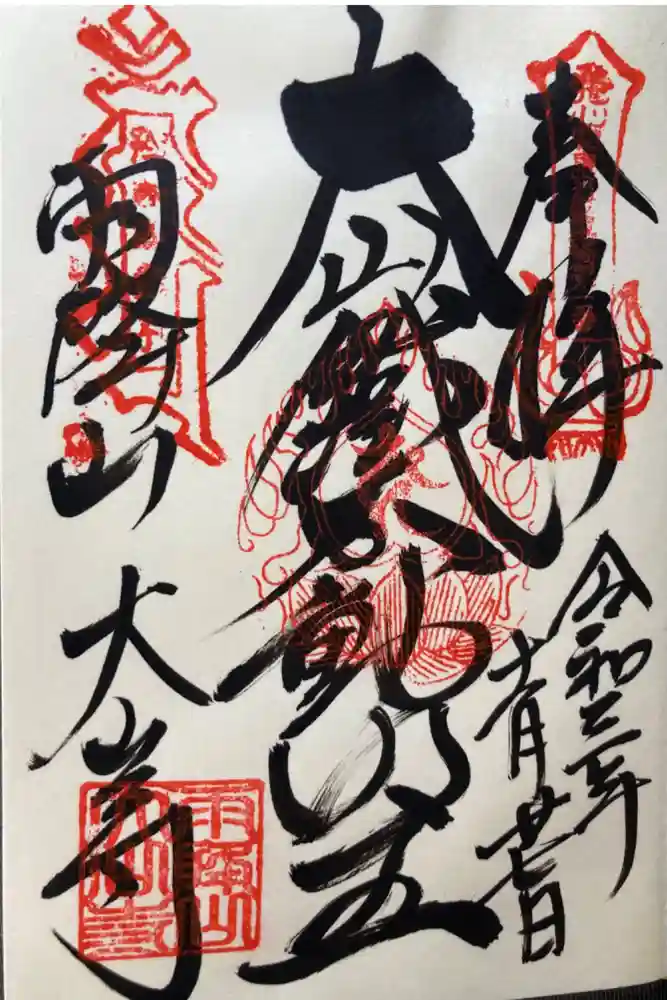 奉拝
令和三年
十一月廿七日
大山鐵不動明王
雨降山
大山寺
雨降山
大山寺